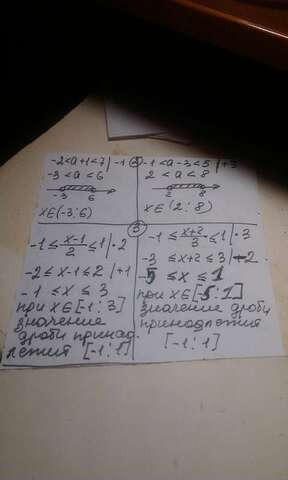 ②
-2<a+1<7 | -1
-3 < a < 6
-3 6
x∈(-3;6)
-1 < a-3 < 5 | +3
2 < a < 8
2 8
x∈(2;8)
③
-1 ≤ x-1/2 ≤ 1 | ·2
-2 ≤ x-1 ≤ 2 | +1
-1 ≤ x ≤ 3
при x∈[-1;3]
значение
дроби принад
лежит [-1;1]
-1 ≤ x+2/3 ≤ 1 | ·3
-3 ≤ x+2 ≤ 3 | -2
-5 ≤ x ≤ 1
при x∈[-5;1]
значение дроби
принадлежит
[-1;1]